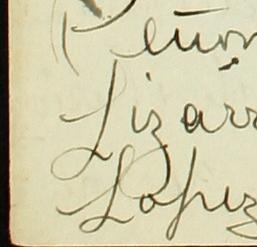 Peñon
Lizarr
Lopez